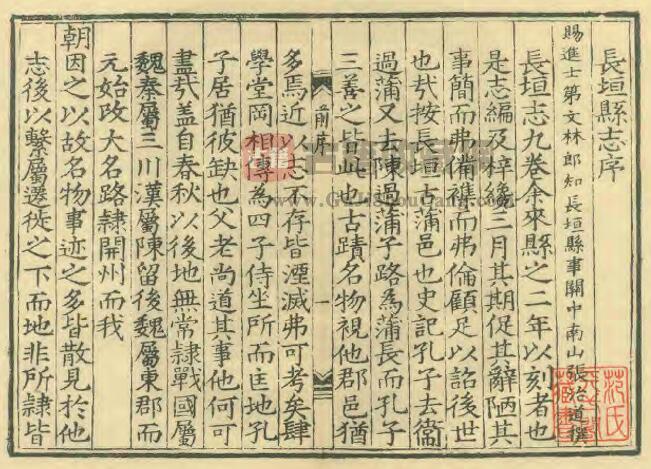 長垣縣志序
賜進士第文林郎知長垣縣事關中南山張治道撰
長垣志九卷余來縣之二年以刻者也
是志編及梓纔三月其期促其辭陋其
事簡而弗備襍而弗倫顧足以詔後世
也㢤按長垣古蒲邑也史記孔子去衞
過蒲又去陳過蒲子路為蒲長而孔子
三善之皆此也古蹟名物視他郡邑猶
前序
一
多焉近以志不存皆湮滅弗可考矣肆
學堂岡相傳為四子侍坐所而匡地孔
子居猶彼缺也父老尚道其事他何可
盡㢤盖自春秋以後地無常隷戰國屬
魏秦屬三川漢屬陳留後魏屬東郡而
元始改大名路隷開州而我
朝因之以故名物事迹之多皆散見於他
志後以繫屬遷徙之下而地非所隷皆
范氏
天一閣
藏書